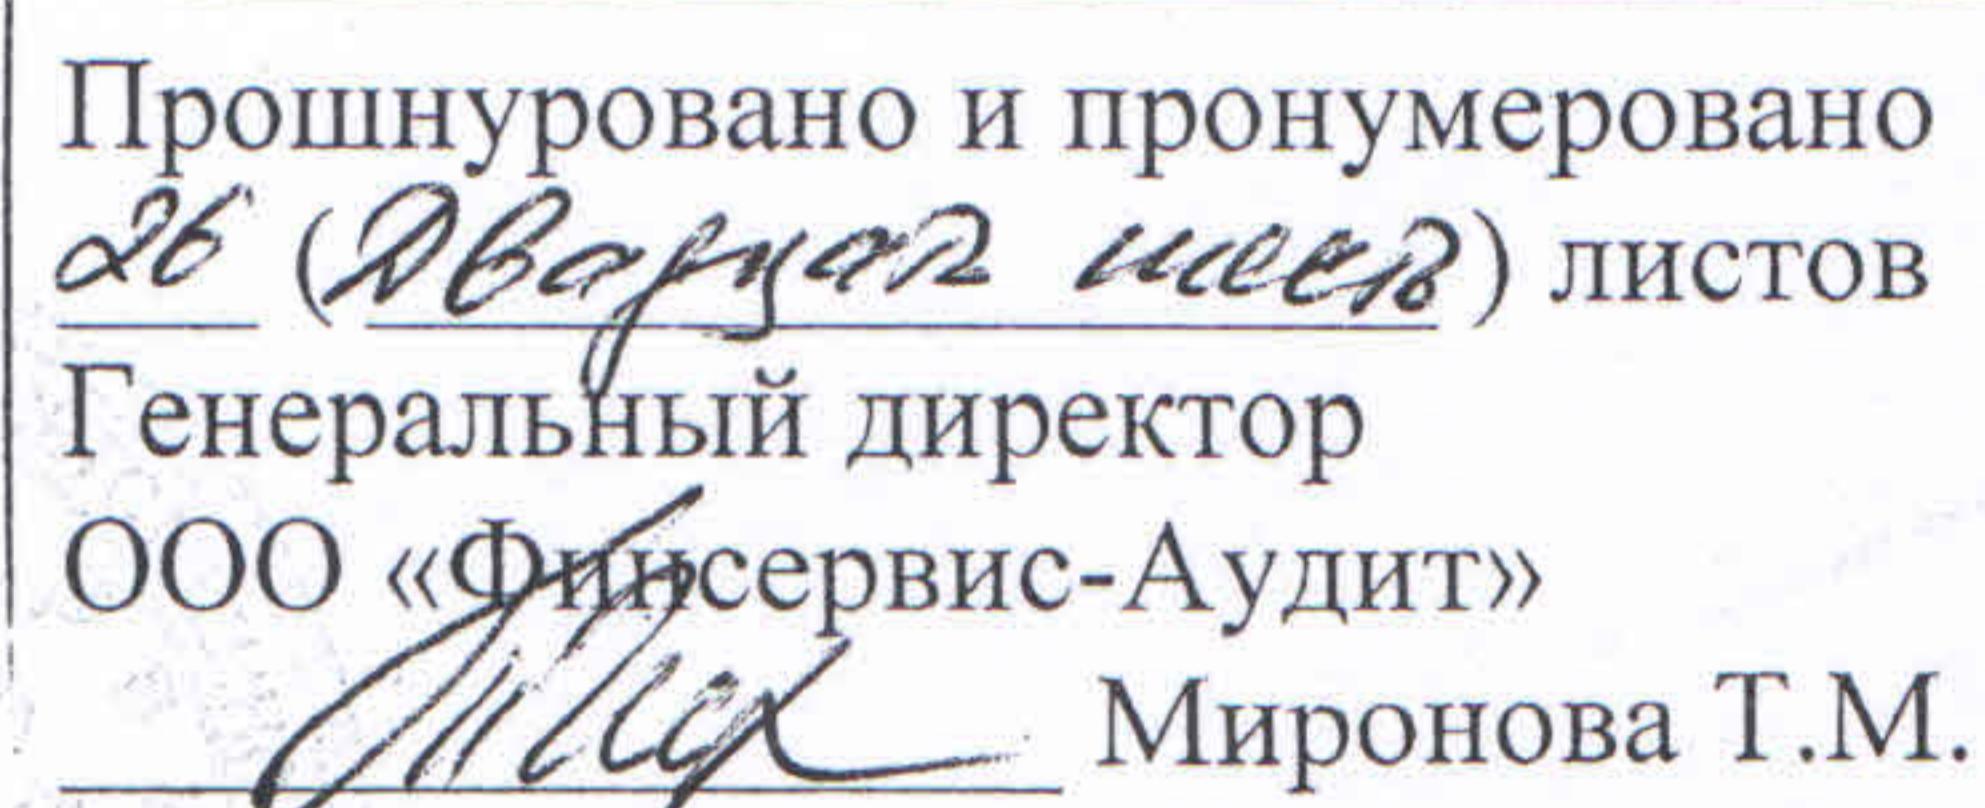 Прошнуровано и пронумеровано
26 (Двадцать шесть) листов
Генеральный директор
ООО «Финсервис-Аудит»
Миронова Т.М.